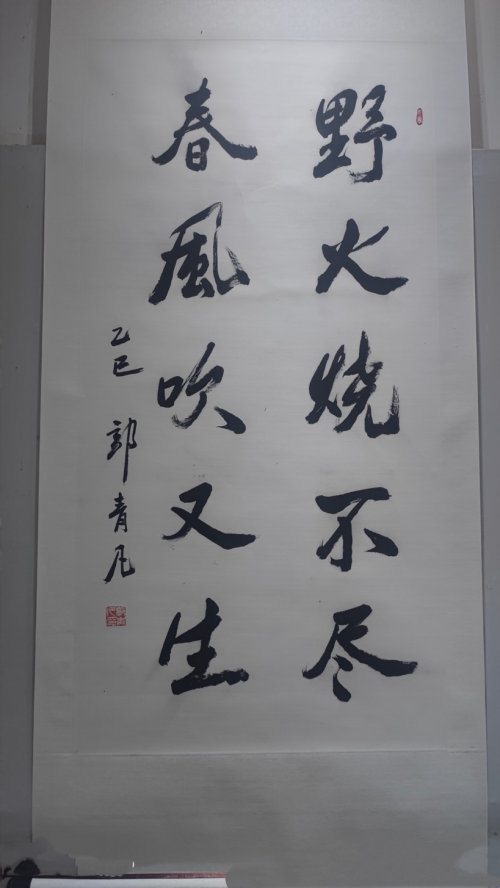 野火烧不尽
春風吹又生
乙巳 郭青凡